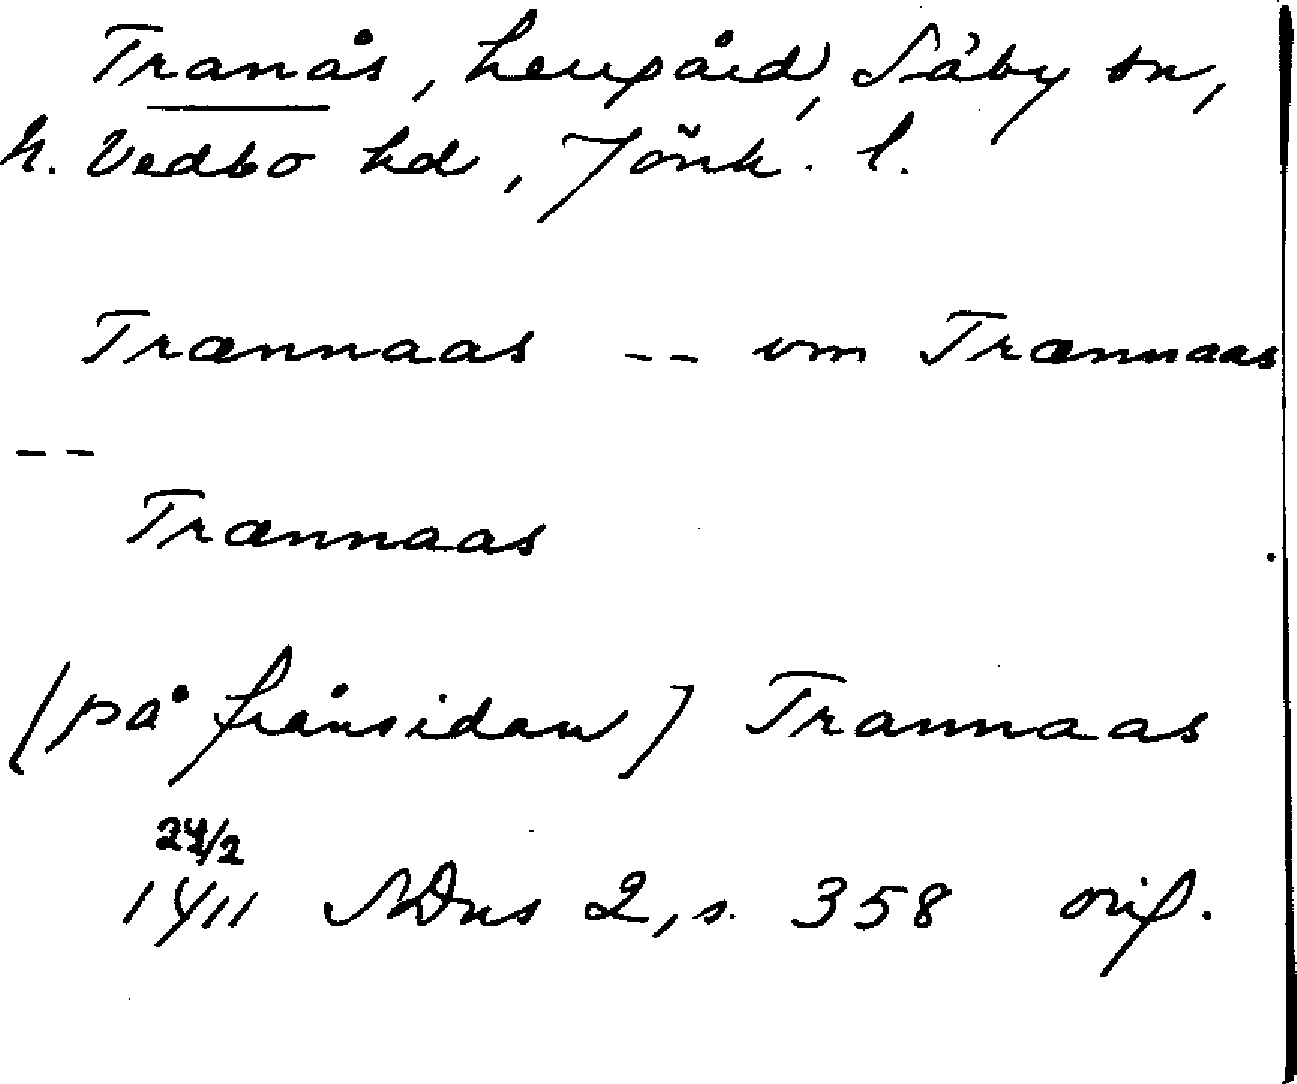 Tranås, herrgård, Säby sn,
N. Vedbo hd, Jönk. l.
Trænnaas -- vm Trænnaas
--
Trænnaas
(på frånsidan) Trannaas
24/2
1411 SDns 2, s. 358 orig.